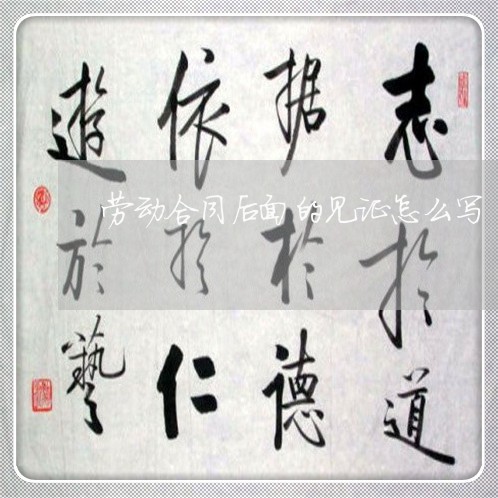 志扵道
据於德
依扵仁
遊於藝
劳动合同后面的见证怎么写